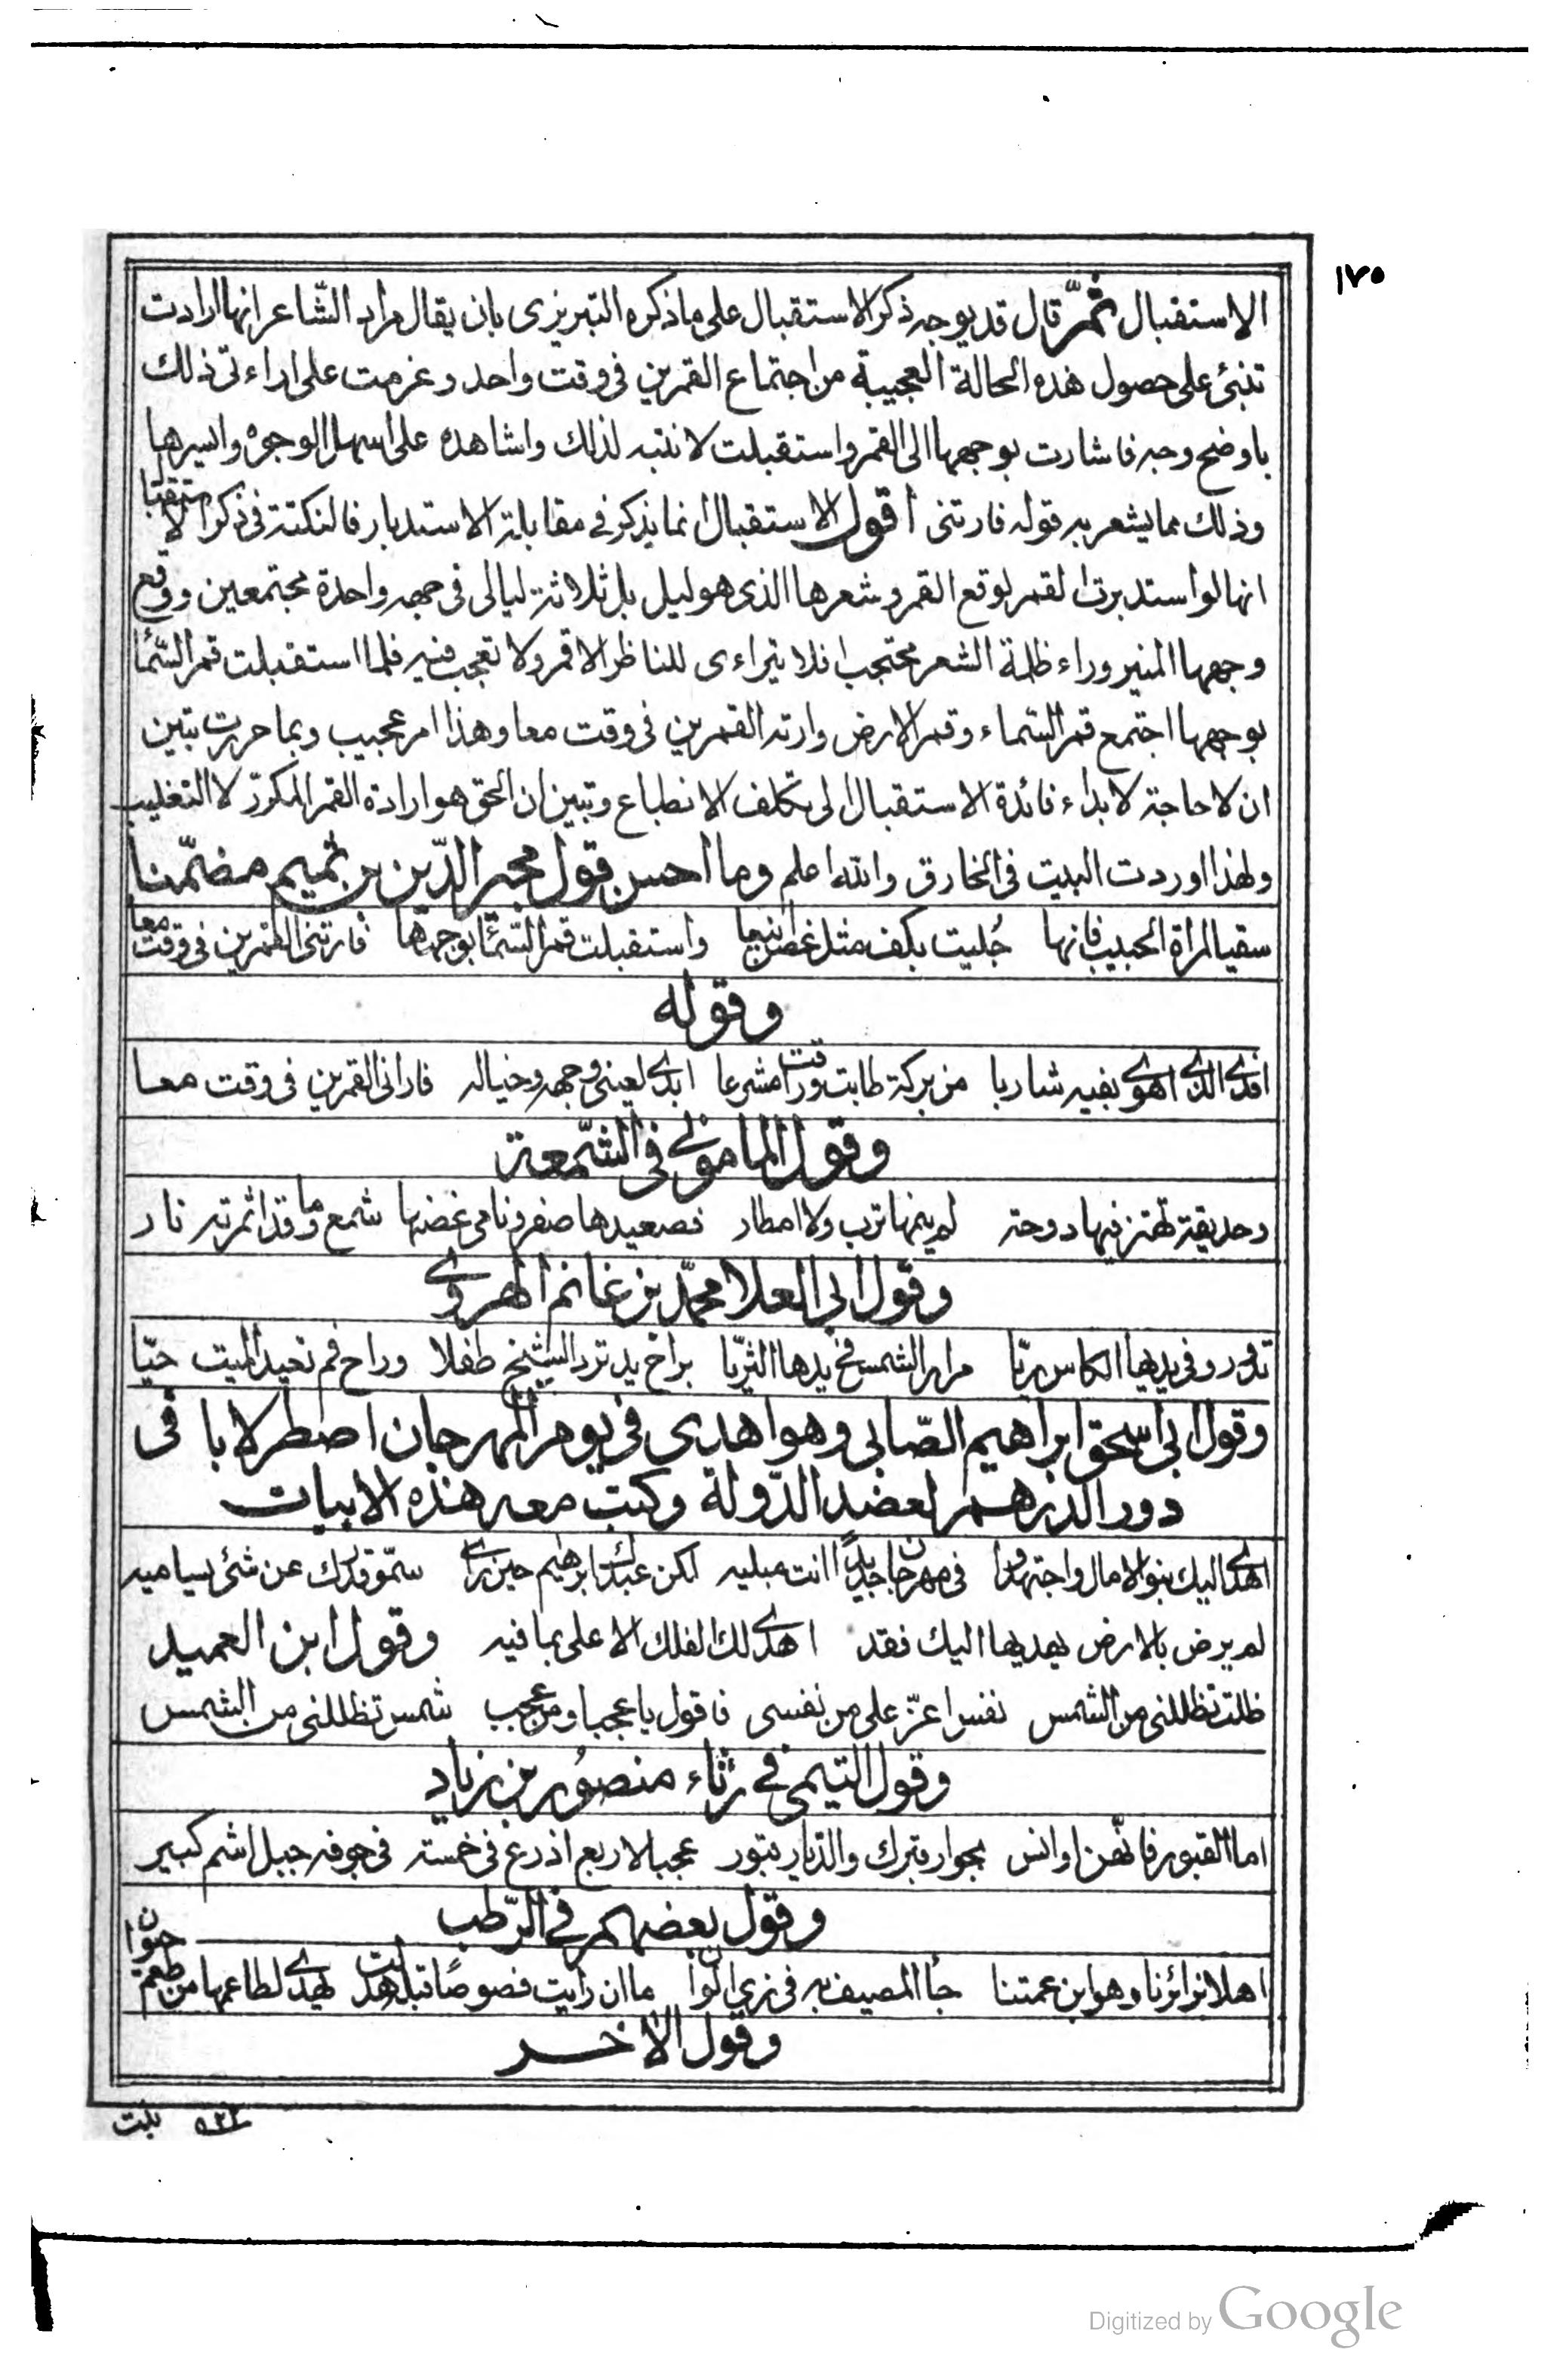 ١٧٥
الاستقبال ثمّ قال قد يوجه ذكر الاستقبال على ما ذكره التبريزى بان يقال مراد الشّاعر انها ارادت
تنبئ على حصول هذه الحالة العجيبة من اجتماع القمرين فى وقت واحد وعزمت على اراءتى ذلك
باوضح وجه فاشارت بوجهها الى القمر واستقبلت لانتبه لذلك واشاهده على اسهل الوجوه وايسرها
وذلك مما يشعر به قوله فارتنى اقول الاستقبال انما يذكر فى مقابلة الاستدبار فالنكتة فى ذكر الاستقبا
انها لو استدبرت القمر لوقع القمر وشعرها الذى هو ليل بل ثلاثة ليالى فى جهه واحدة مجتمعين ووقع
وجهها المنير وراء ظلمة الشعر محتجبا فلا يتراءى للناظر الا قمر ولا تعجب فيه فلما استقبلت قمر السّما
بوجهها اجتمع قمر السّماء وقمر الارض وارته القمرين فى وقت معا وهذا امر عجيب وبما حررت تبين
ان لا حاجة لابداء فائدة الاستقبال الى تكلف الانطباع وتبين ان الحق هو ارادة القمر المكرر لا التغليب
ولهذا اوردت البيت فى الخارق والله اعلم وما احسن قول مجير الدّين بن تميم مضمّنا
سقيا لمراة الحبيب فانها جُليت بكف مثل غصن اينعا واستقبلت قمر السّما بوجهها فارتنى القمرين فى وقت معا
وقوله
افدى الذى اهوى بفيه شاربا من بركة طابت وراقت مشرعا ابدى لعينى وجهه وخياله فارانى القمرين فى وقت معا
وقول المامونى فى الشّمعة
وحديقة تهتز فيها دوحة لم ينمها ترب ولا امطار فصعيدها صفر ونامى غصنها شمع وما قد اثمرته نار
وقول ابى العلا محمّد بن غانم الهروى
تدور وفى يديها الكاس ريّا مراد الشمس فى يدها الثريّا براح يد ترد الشيخ طفلا وراح فم تعيد الميت حيّا
وقول ابى اسحق ابراهيم الصّابى وهو اهدى فى يوم المهرجان اصطرلابا فى
دور الدرهم لعضد الدّولة وكتب معه هذه الابيات
اهدى اليك بنو الامال واجتهدوا فى مهرجان جديدا انت مبليه لكن عبدك ابرهيم حين راى سمّو قدرك عن شئ يساميه
لم يرض بالارض يهديها اليك فقد اهدى لك الفلك الاعلى بما فيه وقول ابن العميد
ظلت تظللنى من الشمس نفس اعزّ على من نفسى فاقول يا عجبا ومن عجب شمس تظللنى من الشمس
وقول التيمى فى رثاء منصور بن زياد
اما القبور فانّهن اوانس بجوار قبرك والدّيار قبور عجبا لاربع اذرع فى خمسة فى جوفه جبل اشم كبير
وقول بعضهم فى الرّطب
اهلا بزائرنا وهو ابن عمتنا جأ المصيف به فى زى الوان ما ان رايت فصوصًا قبلها اهدت تهدى لطاعمها من طعم حلوان
وقول الاخر
بلبت